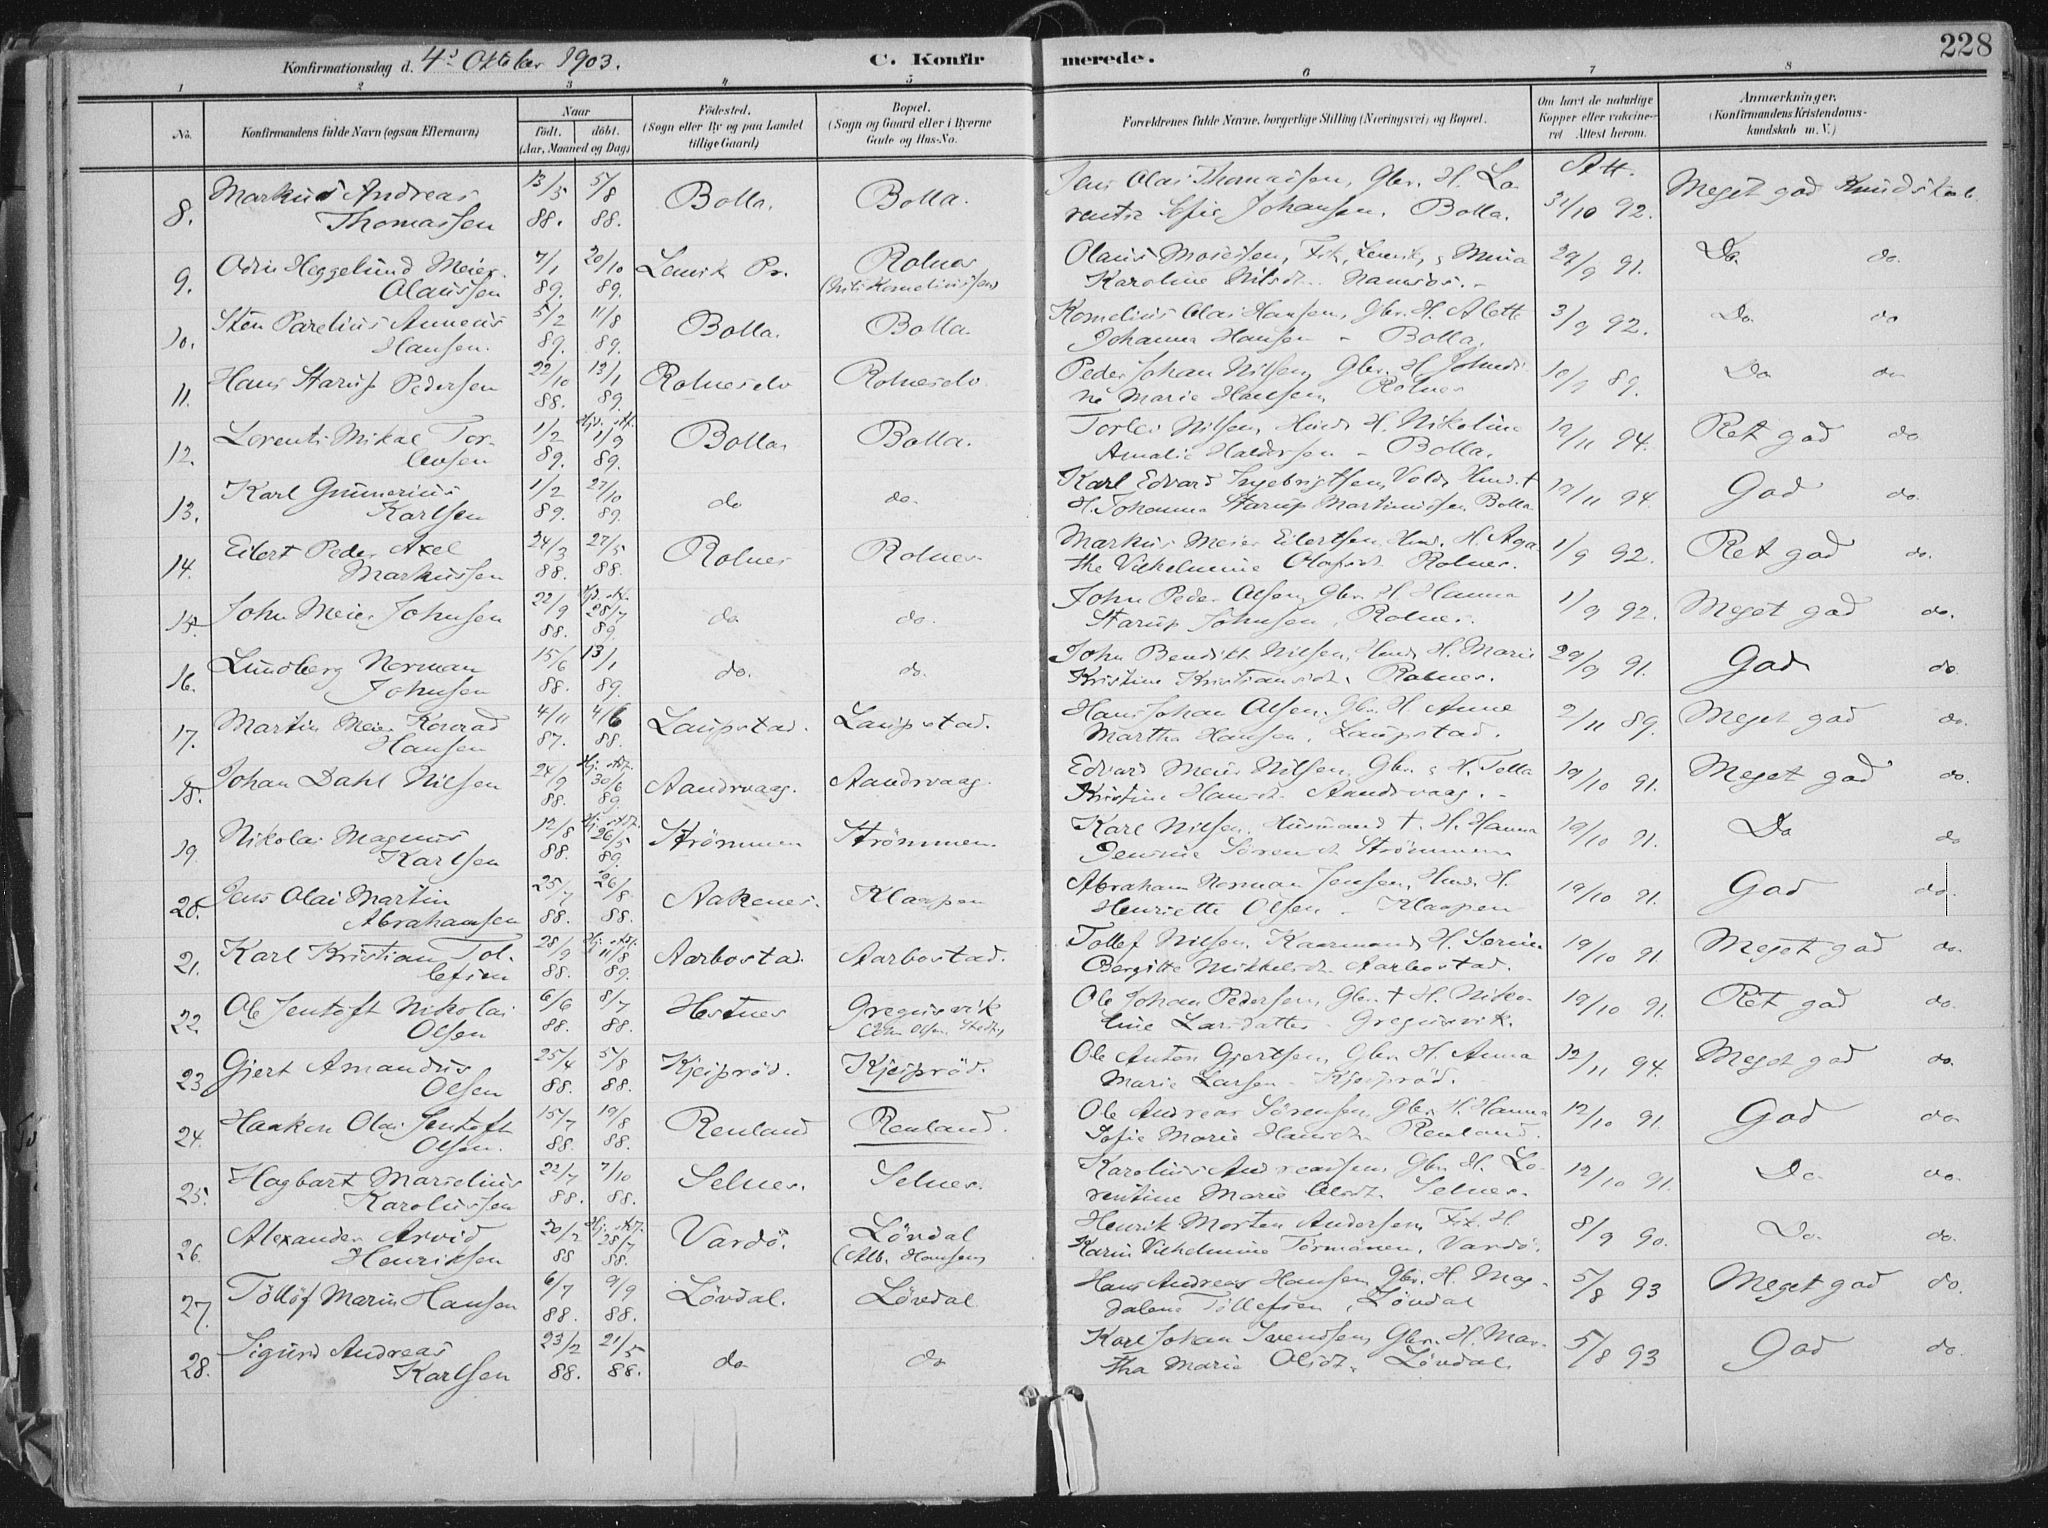 228
Konfirmationsdag d. 4de Oktober 1903. C. Konfirmerede.
1 2 3 4 5 6 7 8
No. Konfirmandens fulde Navn (ogsaa Efternavn) Naar födt. döbt. (Aar, Maaned og Dag) Födested. (Sogn eller By og paa Landet tillige Gaard) Bopæl. (Sogn og Gaard eller i Byerne Gade og Hus-No. Forældrenes fulde Navne, borgerlige Stilling (Næringsvei) og Bopæl. Om havt de naturlige Kopper eller vakcineret Attest herom. Anmærkninger. (Konfirmandens Kristendomskundskab m. V.)
8. Markus Andreas 13/5 5/8 Bolla. Bolla. Jens Olai Thomassen, Gbr. H. Lo- Att. Meget god Kundskab.
Thomassen 88. 88. rentze Sofie Johansen. Bolla. 31/10 92.
9. Odin Heggelund Meier 7/1 20/10 Lenvik Pr. Rolnes Olaus Mosessen, Fisk. Lenvik, & Mina 29/9 91. Do. do.
Olaussen 89. 89. (Nils Korneliussen) Karoline Nilsdt. Namsos.
10. Sten Parelius Anneus 5/2 11/8 Bolla. Bolla. Kornelius Olai Hansen, Gbr. H. Alette 3/9 92. Do do
Hansen. 89. 89. Johanna Hansen - Bolla.
11. Hans Starup Pedersen 22/10 13/1 Rolneselv Rolneselv. Peder Johan Nilsen, Gbr. H. Johndi- 10/9 89. Do do
88. 89. ne Marie Hansen, Rolnes
12. Lorents Mikal Tor- 1/2 Hj. stf. 1/9 Bolla. Bolla. Torlei Nilsen, Husm. H. Nikoline 19/11 94. Ret god do
leusen 89. 89. Amalie Haldorsen - Bolla.
13. Karl Gunnerius 1/2 27/10 do do. Karl Edvard Ingebrigtsen Vold, Husm. † 19/11 94. God do.
Karlsen 89. 89. H. Johanna Starup Martinussen Bolla
14. Eilert Peder Axel 24/3 27/5 Rolnes Rolnes Markus Meier Eilertsen, Husm. H. Aga- 1/9 92. Ret god do.
Markussen 88. 88. the Vilhelmine Olafsdt. Rolnes.
15. John Meier Johnsen 22/9 28/7 do do. John Peder Olsen, Gbr. H. Hanna 1/9 92. Meget god do.
88. 89. Starup Johnsen, Rolnes.
16. Lundberg Norman 15/6 13/1 do. do. John Bendikt Nilsen, Husm. H. Marie 29/9 91. God do
Johnsen 88. 89. Kristine Kristiansdt. Rolnes.
17. Martin Meier Konrad 4/11 4/6 Laupstad. Laupstad. Hans Johan Olsen, Gbr. H. Anne 2/11 89. Meget god do.
Hansen 87. 88. Martha Hansen, Laupstad.
18. Johan Dahl Nilsen 24/9 30/6 Aandsvaag. Aandsvaag. Edvard Meier Nilsen, Gbr. & H. Tella 19/10 91. Meget god do.
88. 89. Kristine Hansdt. Aandsvaag.
19. Nikolai Magnus 12/8 26/5 Strömmen Strömmen. Karl Nilsen, Husmand †. H. Hanna 19/10 91. Do do
Karlsen 88. 89. Sörensdt. Strömmen
20. Jens Olai Martin 25/7 26/8 Aakenes. Klaapen Abraham Norman Jensen, Husm. H. 19/10 91. God do.
Abrahamsen 88. 88. Henriette Olsen - Klaapen
21. Karl Kristian Tol- 28/9 11/8 Aarbostad. Aarbostad. Tollef Nilsen, Kaarmand, H. Serine 19/10 91. Meget god do.
lefsen 88. 89. Bergitte Mikkelsdt. Aarbostad.
22. Ole Jentoft Nikolai 6/6 8/7 Hestnes Gregusvik Ole Johan Pedersen, Gbr. † H. Niko- 19/10 91. Ret god do.
Olsen 88. 88. line Larsdatter - Gregusvik.
23. Gjert Amandus 25/4 5/8 Kjeipröd. Kjeipröd. Ole Anton Gjertsen, Gbr. H. Anna 12/11 94. Meget god do.
Olsen 88. 88. Marie Larsen - Kjeipröd.
24. Haakon Olai Jentoft 15/7 19/8 Renland Renland. Ole Andreas Sörensen, Gbr. H. Hanna 12/10 91. God do
Olsen. 88. 88. Sofie Marie Hansdt. Renland.
25. Hagbart Marselius 22/7 7/10 Selnes. Selnes. Karolius Andreassen, Gbr. H. Lo- 12/10 91. Do. do.
Karolussen 88. 88. rentine Marie Olsdt. Selnes.
26. Alexander Arvid 20/2 28/7 Vardö. Lövdal Henrik Morten Andersen, Fisk. H. 8/9 90. Do. do.
Henriksen 88 88. (Alb. Hansen) Karin Vilhelmine Törmänen, Vardö.
27. Töllöf Marius Hansen 6/7 9/9 Lövdal. Lövdal Hans Andreas Hansen, Gbr. H. Mag- 5/8 93 Meget god do.
88. 88. dalena Töllefsen, Lövdal
28. Sigurd Andreas 23/2 21/5 do do Karl Johan Svendsen, Gbr. H. Mar- 5/8 93 God do.
Karlsen 88. 88. tha Marie Olsdt. Lövdal.